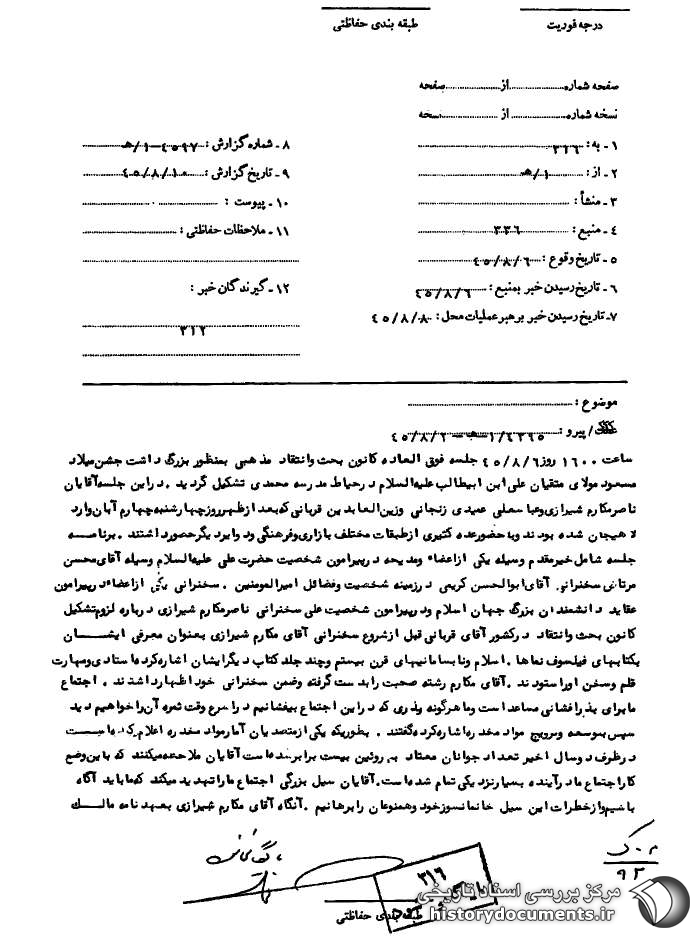 درجه فوریت
طبقه بندی حفاظتی
صفحه شماره ........ از ........ صفحه
نسخه شماره ........ از ........ نسخه
۱ - به : ۳۱۶
۲ - از : ۱/هـ
۳ - منشأ :
۴ - منبع : ۳۳۶
۵ - تاریخ وقوع : ۴۵/۸/۶
۶ - تاریخ رسیدن خبر بمنبع : ۴۵/۸/۶
۷ - تاریخ رسیدن خبر برهبر عملیات محل : ۴۵/۸/۸
۸ - شماره گزارش : ۴۵۹۷-۱/هـ
۹ - تاریخ گزارش : ۴۵/۸/۱۰
۱۰ - پیوست :
۱۱ - ملاحظات حفاظتی :
۱۲ - گیرندگان خبر :
۳۱۲
موضوع :
پیرو : ۴۵/۸/۲
ساعت ۱۶۰۰ روز ۴۵/۸/۶ جلسه فوق العاده کانون بحث وانتقاد مذهبی بمنظور بزرگ داشت جشن میلاد
مسعود مولای متقیان علی ابن ابیطالب علیه السلام در حیاط مدرسه محمدی تشکیل گردید . در این جلسه آقایان
ناصر مکارم شیرازی وعباسعلی عمیدی زنجانی وزین العابدین قربانی که بعد از ظهر روز چهارشنبه چهارم آبان وارد
لاهیجان شده بودند وبا حضور عده کثیری از طبقات مختلف بازاری وفرهنگی ودوایر دیگر حضور داشتند . برنامه
جلسه شامل خیر مقدم وسیله یکی از اعضاء ومدیحه در پیرامون شخصیت حضرت علی علیه السلام وسیله آقای محسن
مرتاض سخنرانی آقای ابوالحسن کریمی در زمینه شخصیت وفضائل امیرالمومنین . سخنرانی یکی از اعضاء در پیرامون
عقاید دانشمندان بزرگ جهان اسلام ودر پیرامون شخصیت علی سخنرانی ناصر مکارم شیرازی در باره لزوم تشکیل
کانون بحث وانتقاد در کشور آقای قربانی قبل از شروع سخنرانی آقای مکارم شیرازی بعنوان معرفی ایشان
بکتابهای فیلسوف نماها . اسلام ونابسامانیهای قرن بیستم وچند جلد کتاب دیگر ایشان اشاره کرده استادی ومهارت
قلم وسخن او را ستودند . آقای مکارم رشته صحبت را بدست گرفته وضمن سخنرانی خود اظهار داشتند . اجتماع
ما برای بذر افشانی مساعد است وما هر گونه وذری که در این اجتماع بیفشانیم در اسرع وقت ثمره آن را خواهیم دید
سپس بتوسعه وترویج مواد مخدره اشاره کرده گفتند . بطوریکه یکی از متصدیان آمار مواد مخدره اعلام کرده است
در ظرف دو سال اخیر تعداد جوانان معتاد به روئین بیست برابر شده است آقایان ملاحظه میکنند که با این وضع
کار اجتماع ما در آینده بسیار نزدیکی تمام شده است . آقایان سیل بزرگی اجتماع ما را تهدید میکند که ما باید آگاه
باشیم واز خطرات این سیل خانمانسوز خود وهمنوعان را برهانیم . آنگاه آقای مکارم شیرازی بعهدنامه مالک
۹۲
۳۱۶
بایگانی شود
طبقه بندی حفاظتی
مرکز بررسی اسناد تاریخی
historydocuments.ir